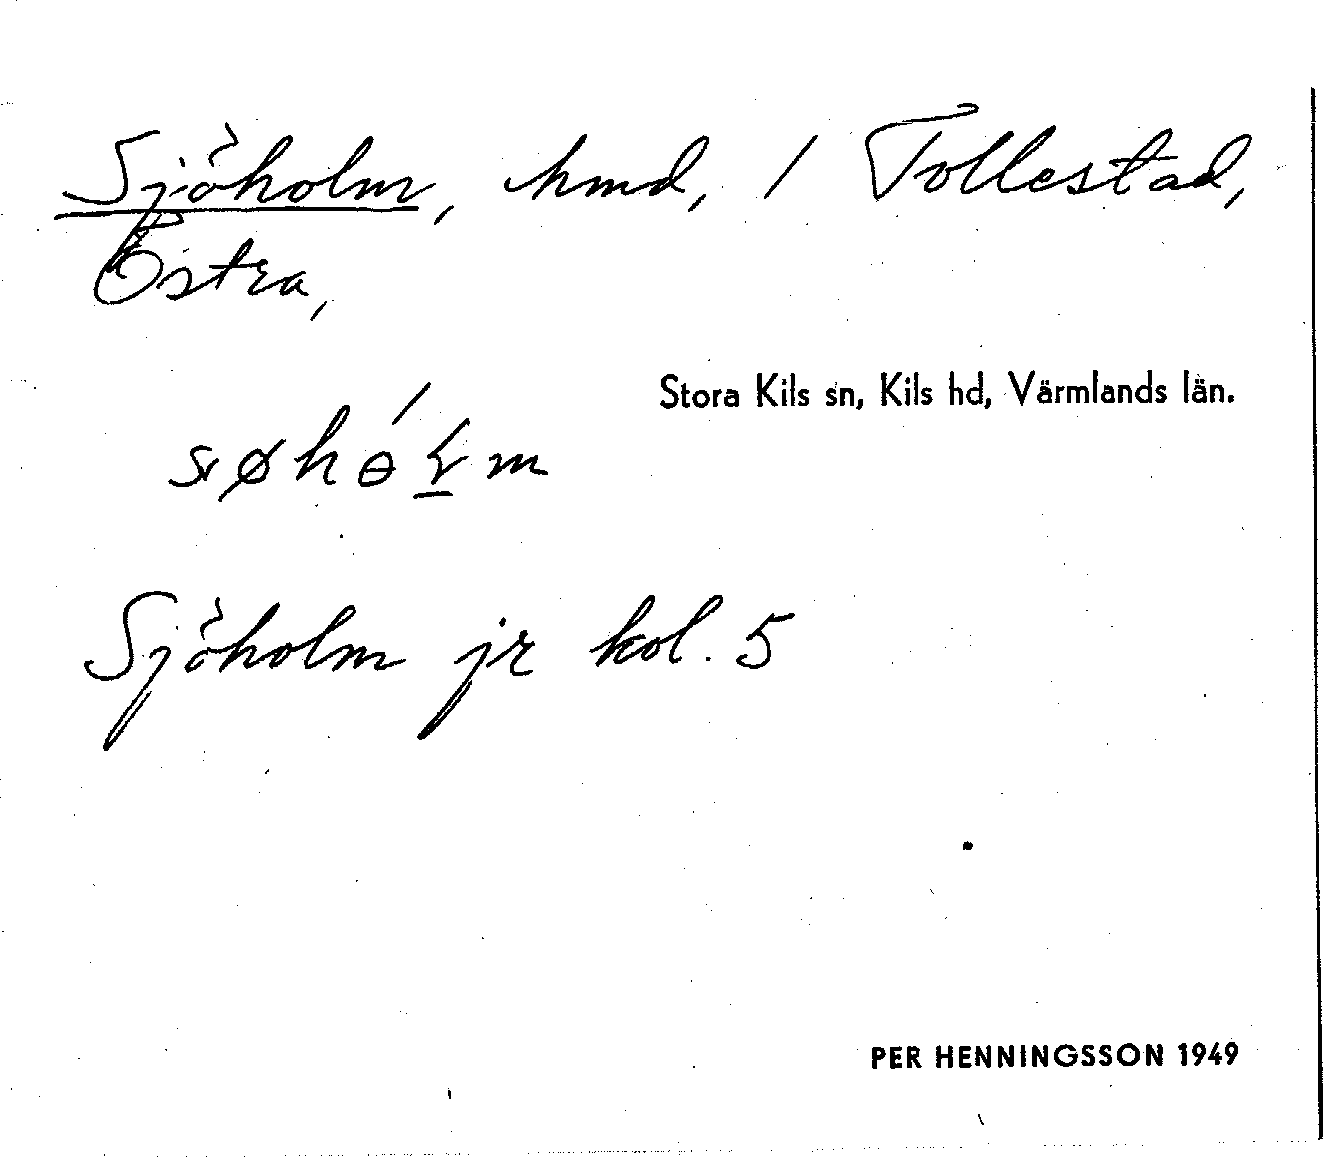 Sjöholm, hmd, / Tollestad,
Östra,
Stora Kils sn, Kils hd, Värmlands län.
Sjöholm jr kol. 5
PER HENNINGSSON 1949